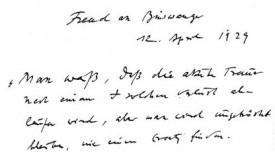 Freud an Binswanger
12. April 1929
„Man weiß, daß die akute Trauer
nach einem solchen Verlust ab-
laufen wird, aber man wird ungetröstet
bleiben, nie einen Ersatz finden.